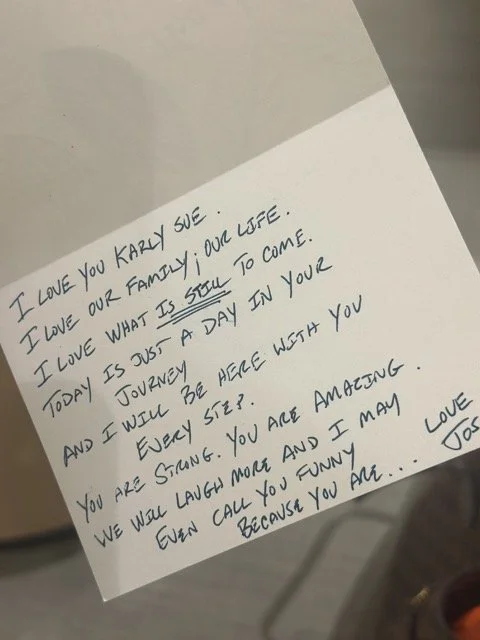 I LOVE YOU KARLY SUE.
I LOVE OUR FAMILY; OUR LIFE.
I LOVE WHAT IS STILL TO COME.
TODAY IS JUST A DAY IN YOUR
JOURNEY
AND I WILL BE HERE WITH YOU
EVERY STEP.
YOU ARE STRONG. YOU ARE AMAZING.
WE WILL LAUGH MORE AND I MAY
EVEN CALL YOU FUNNY
BECAUSE YOU ARE...
LOVE
JOS